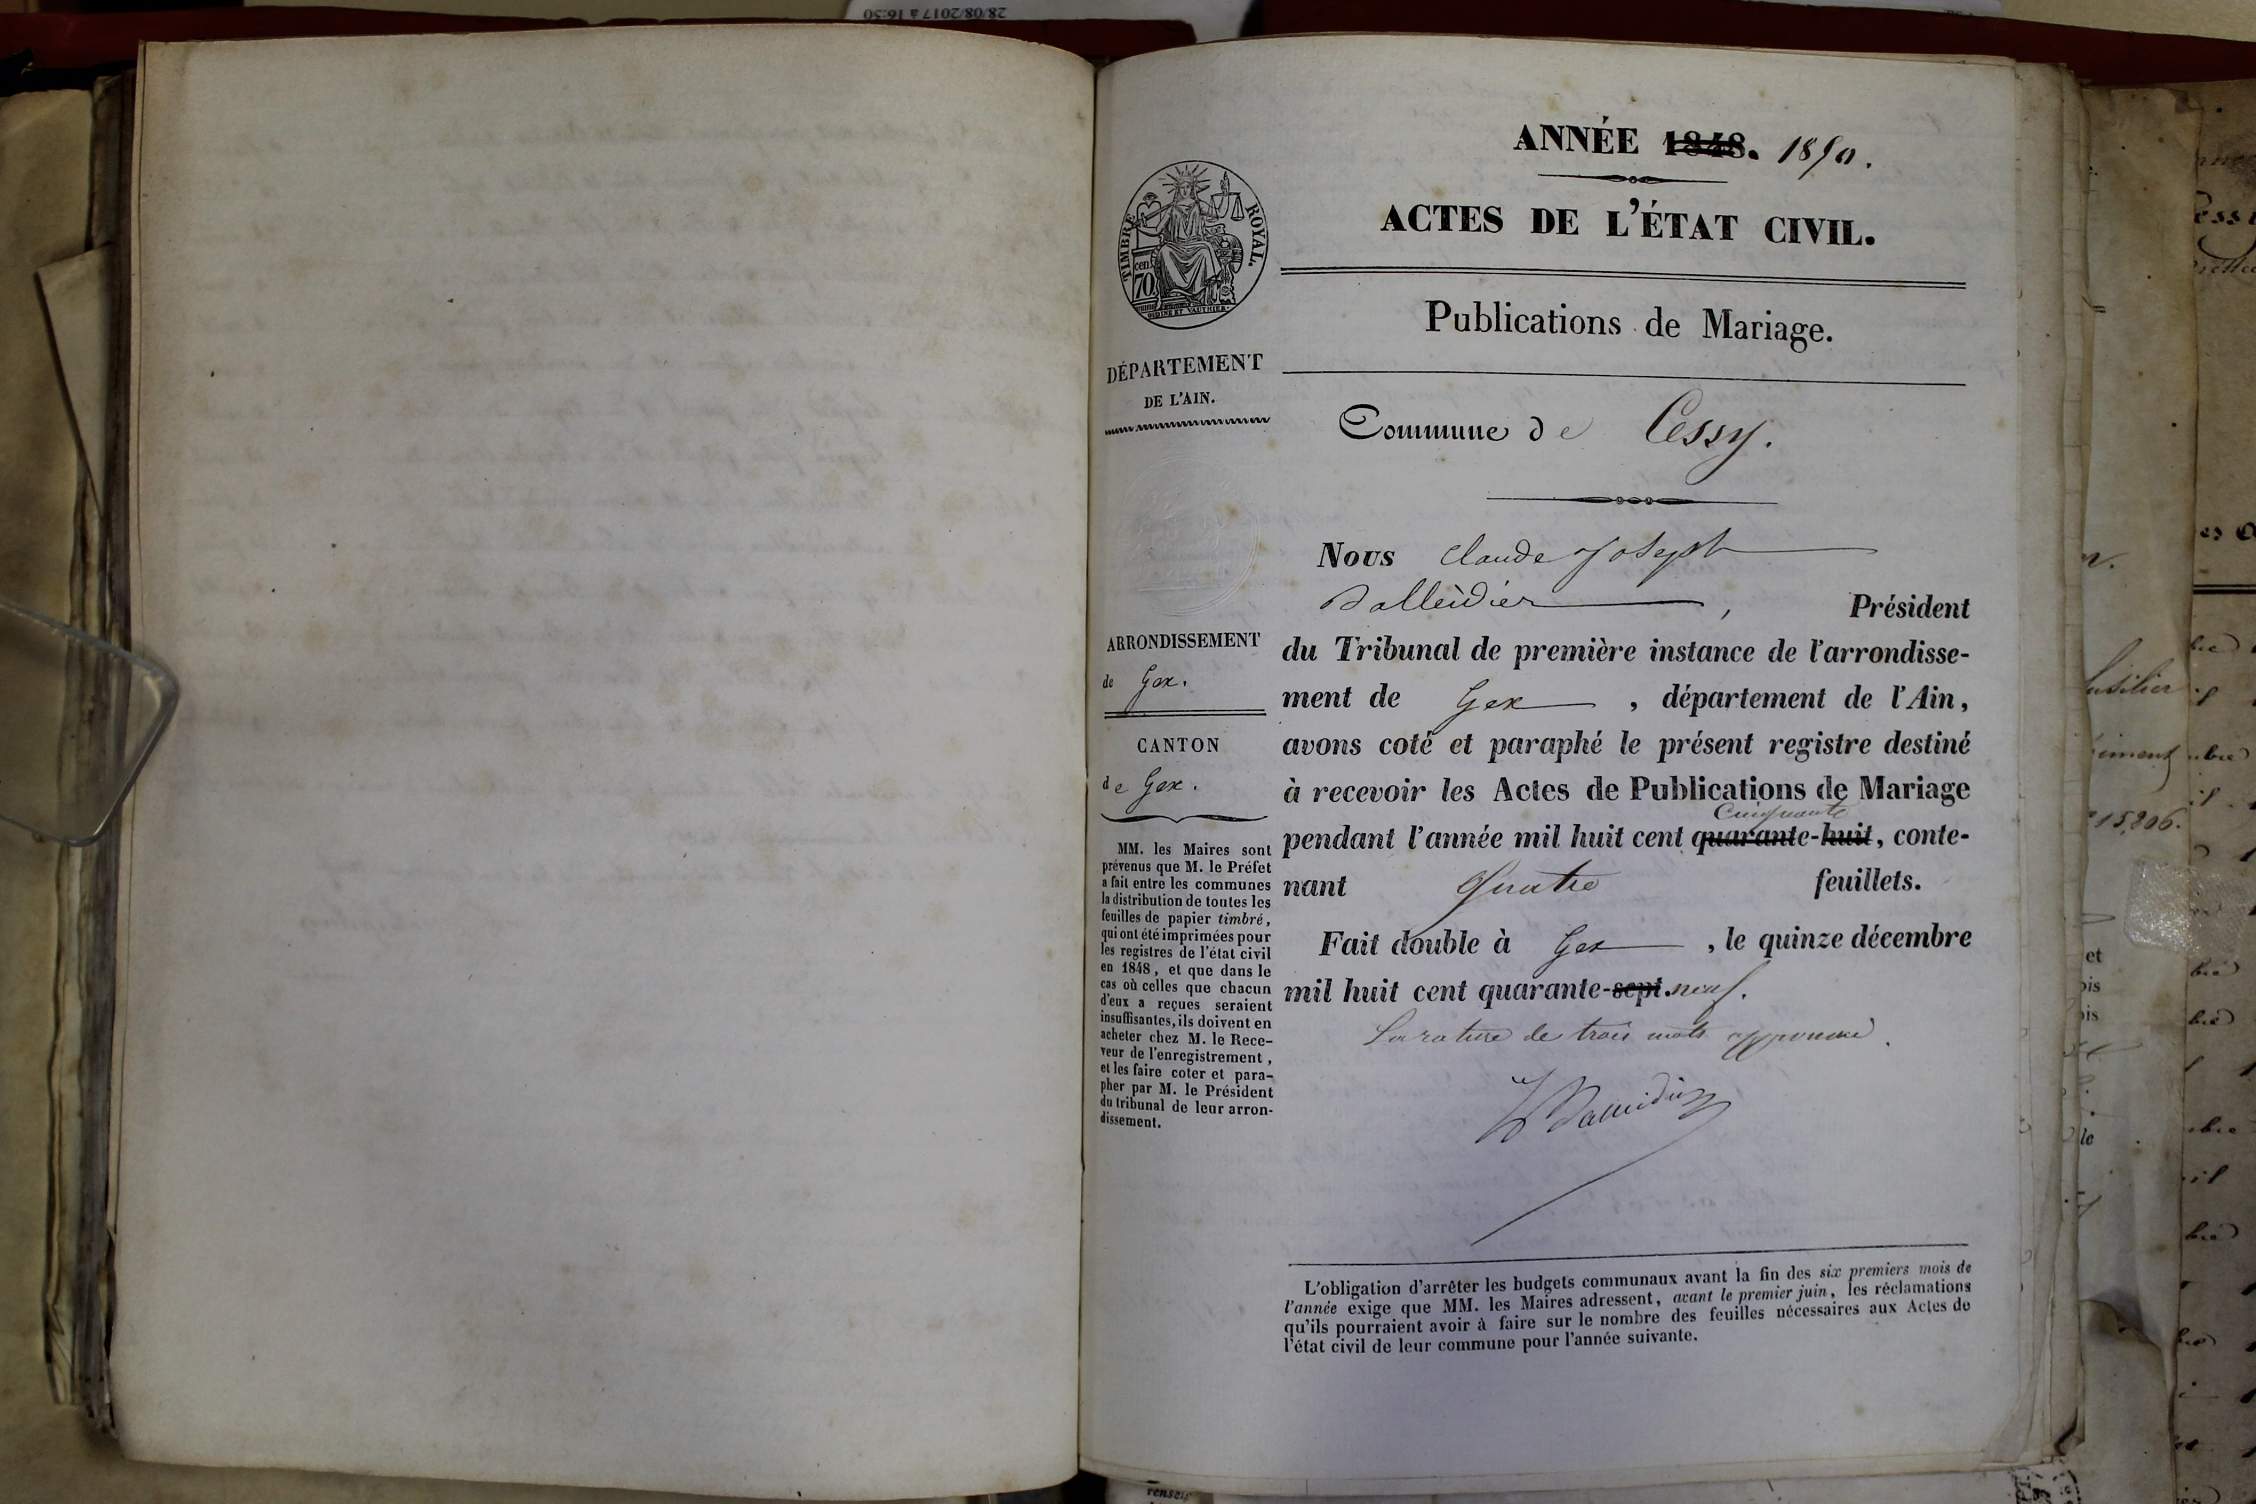 28/08/2017 à 16:50
ANNÉE 1848. 1850.
ACTES DE L'ÉTAT CIVIL.
Publications de Mariage.
Commune de Cessy.
Nous Claude Joseph
Balleidier, Président
du Tribunal de première instance de l'arrondisse-
ment de Gex, département de l'Ain,
avons coté et paraphé le présent registre destiné
à recevoir les Actes de Publications de Mariage
Cinquante
pendant l'année mil huit cent quarante-huit, conte-
nant Quatre feuillets.
Fait double à Gex, le quinze décembre
mil huit cent quarante-sept. neuf.
La rature de trois mots approuvée.
Balleidier
L'obligation d'arrêter les budgets communaux avant la fin des six premiers mois de
l'année exige que MM. les Maires adressent, avant le premier juin, les réclamations
qu'ils pourraient avoir à faire sur le nombre des feuilles nécessaires aux Actes de
l'état civil de leur commune pour l'année suivante.
TIMBRE ROYAL.
cen. 70
DÉPARTEMENT
DE L'AIN.
ARRONDISSEMENT
de Gex.
CANTON
de Gex.
MM. les Maires sont
prévenus que M. le Préfet
a fait entre les communes
la distribution de toutes les
feuilles de papier timbré,
qui ont été imprimées pour
les registres de l'état civil
en 1848, et que dans le
cas où celles que chacun
d'eux a reçues seraient
insuffisantes, ils doivent en
acheter chez M. le Rece-
veur de l'enregistrement,
et les faire coter et para-
pher par M. le Président
du tribunal de leur arron-
dissement.